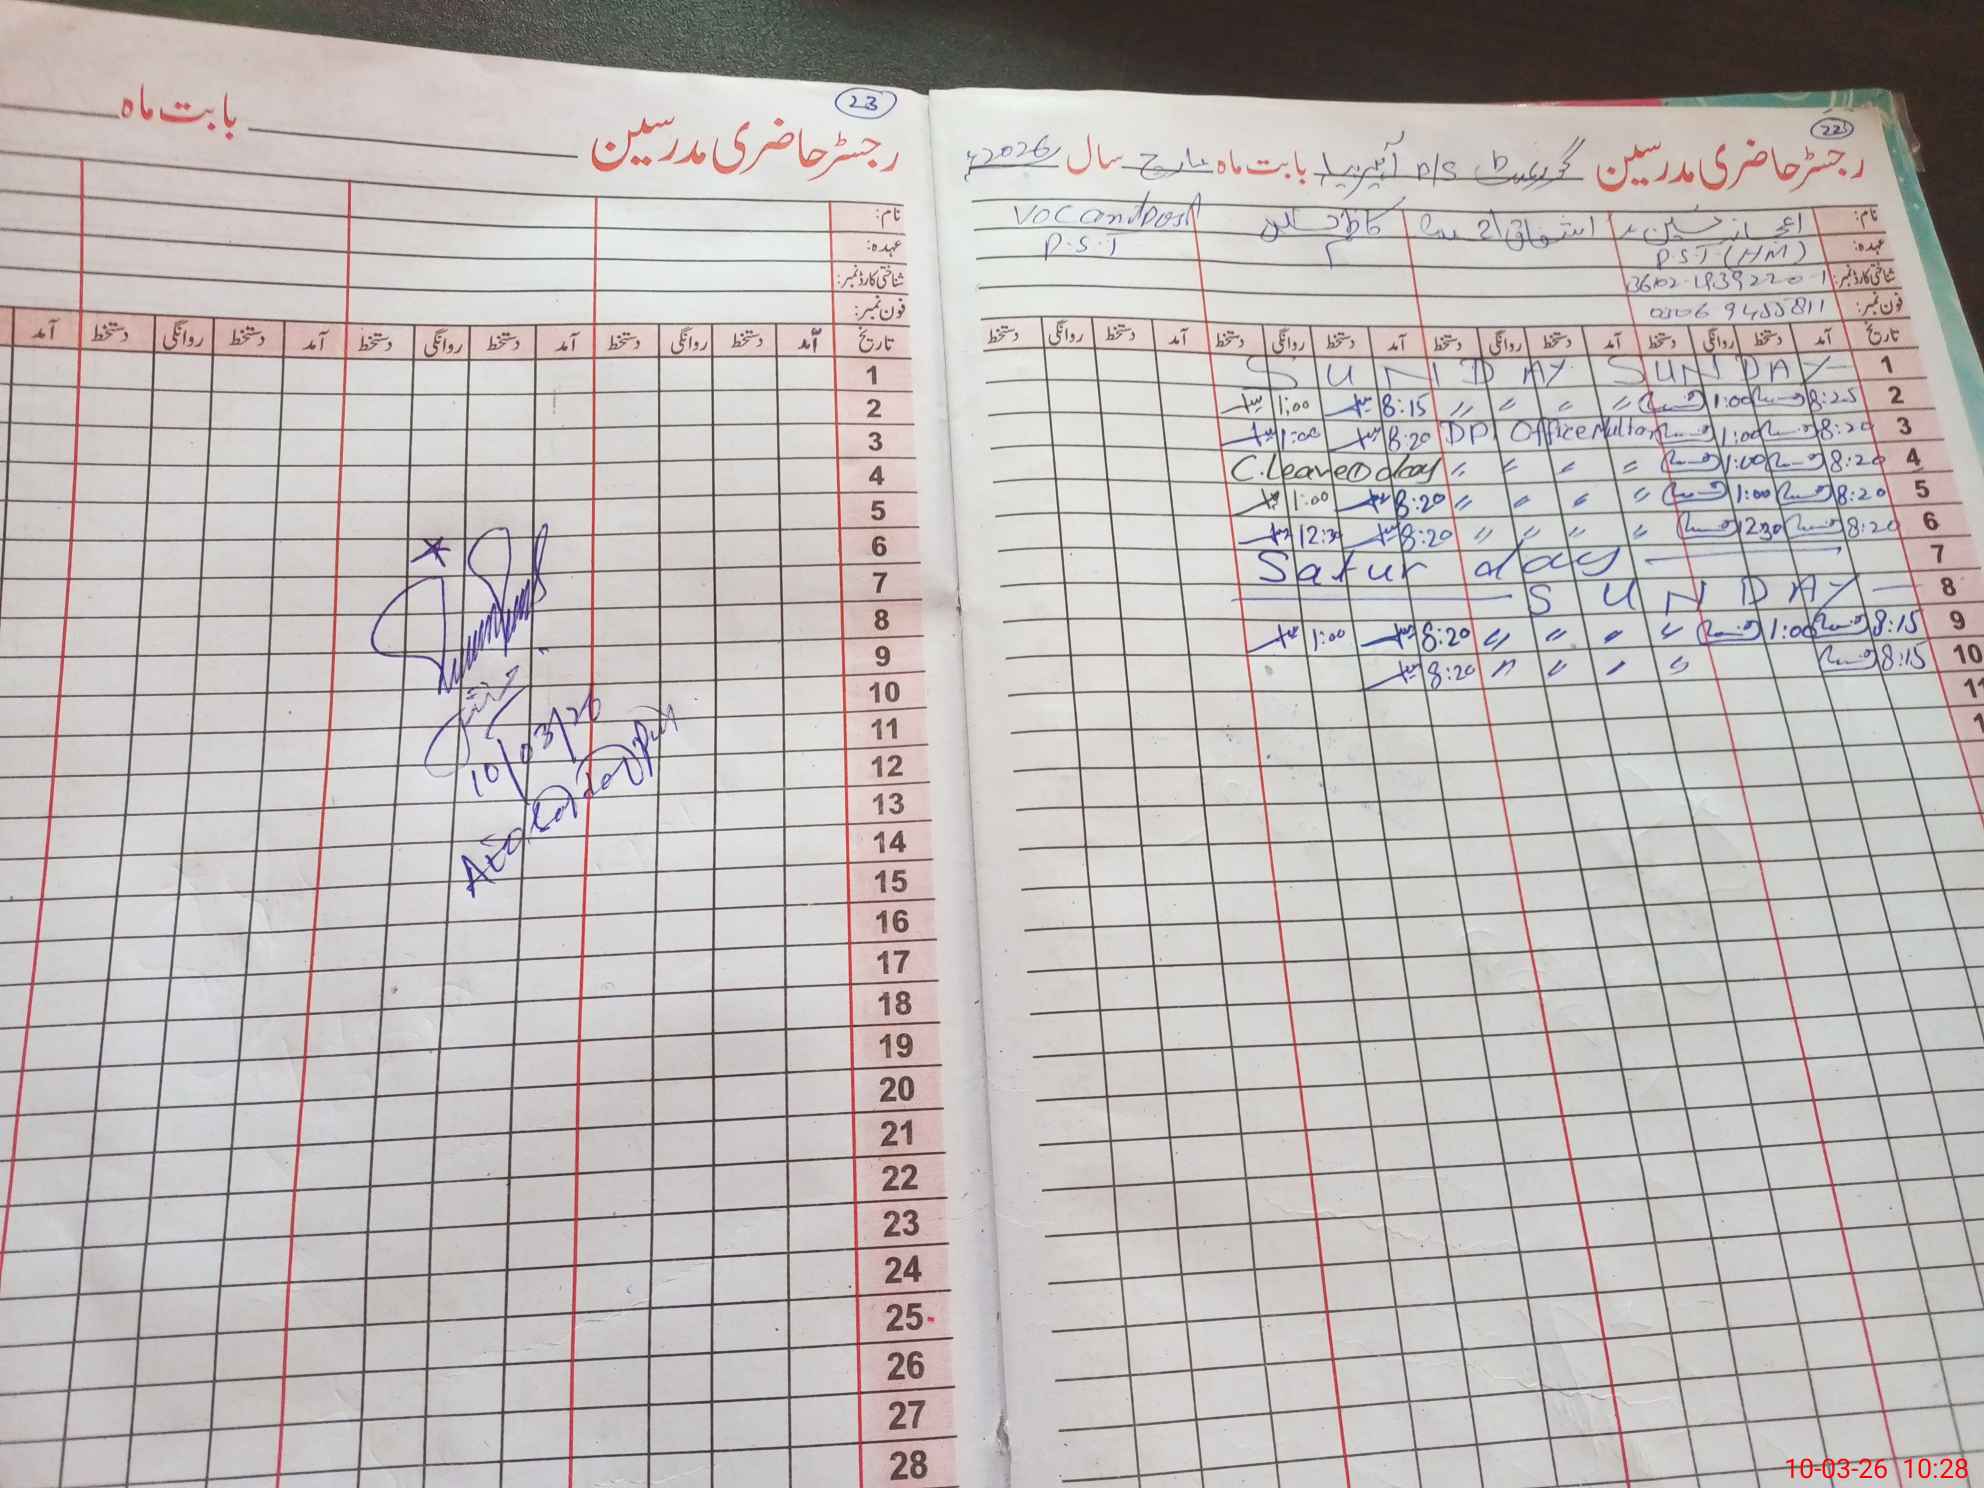 22
رجسٹر حاضری مدرسین گورنمنٹ P/S بابت ماہ مارچ سال 2026ء
نام: اعجاز حسین اشفاق احمد Vacant Post
عہدہ: P.S.T (HM) P.S.T
شناختی کارڈ نمبر:
فون نمبر: 0306 9455811
تاریخ آمد دستخط روانگی دستخط آمد دستخط روانگی دستخط آمد دستخط روانگی دستخط آمد دستخط روانگی دستخط
1 SUNDAY SUNDAY
2 8:25 1:00 〃 〃 〃 〃 8:15 1:00
3 8:20 1:00 DPI Office Multan 8:20 1:00
4 8:20 1:00 〃 〃 〃 〃 C.leave 1 day
5 8:20 1:00 〃 〃 〃 〃 8:20 1:00
6 8:20 12:30 〃 〃 〃 〃 8:20 12:30
7 Saturday
8 SUNDAY
9 8:15 1:00 〃 〃 〃 〃 8:20 1:00
10 8:15 〃 〃 〃 〃 8:20
11
1
23
رجسٹر حاضری مدرسین بابت ماہ
نام:
عہدہ:
شناختی کارڈ نمبر:
فون نمبر:
تاریخ آمد دستخط روانگی دستخط آمد دستخط روانگی دستخط آمد دستخط روانگی دستخط آمد
1
2
3
4
5
6
7
8
9
10
11
12
13
14
15
16
17
18
19
20
21
22
23
24
25
26
27
28
10/03/26
10-03-26 10:28